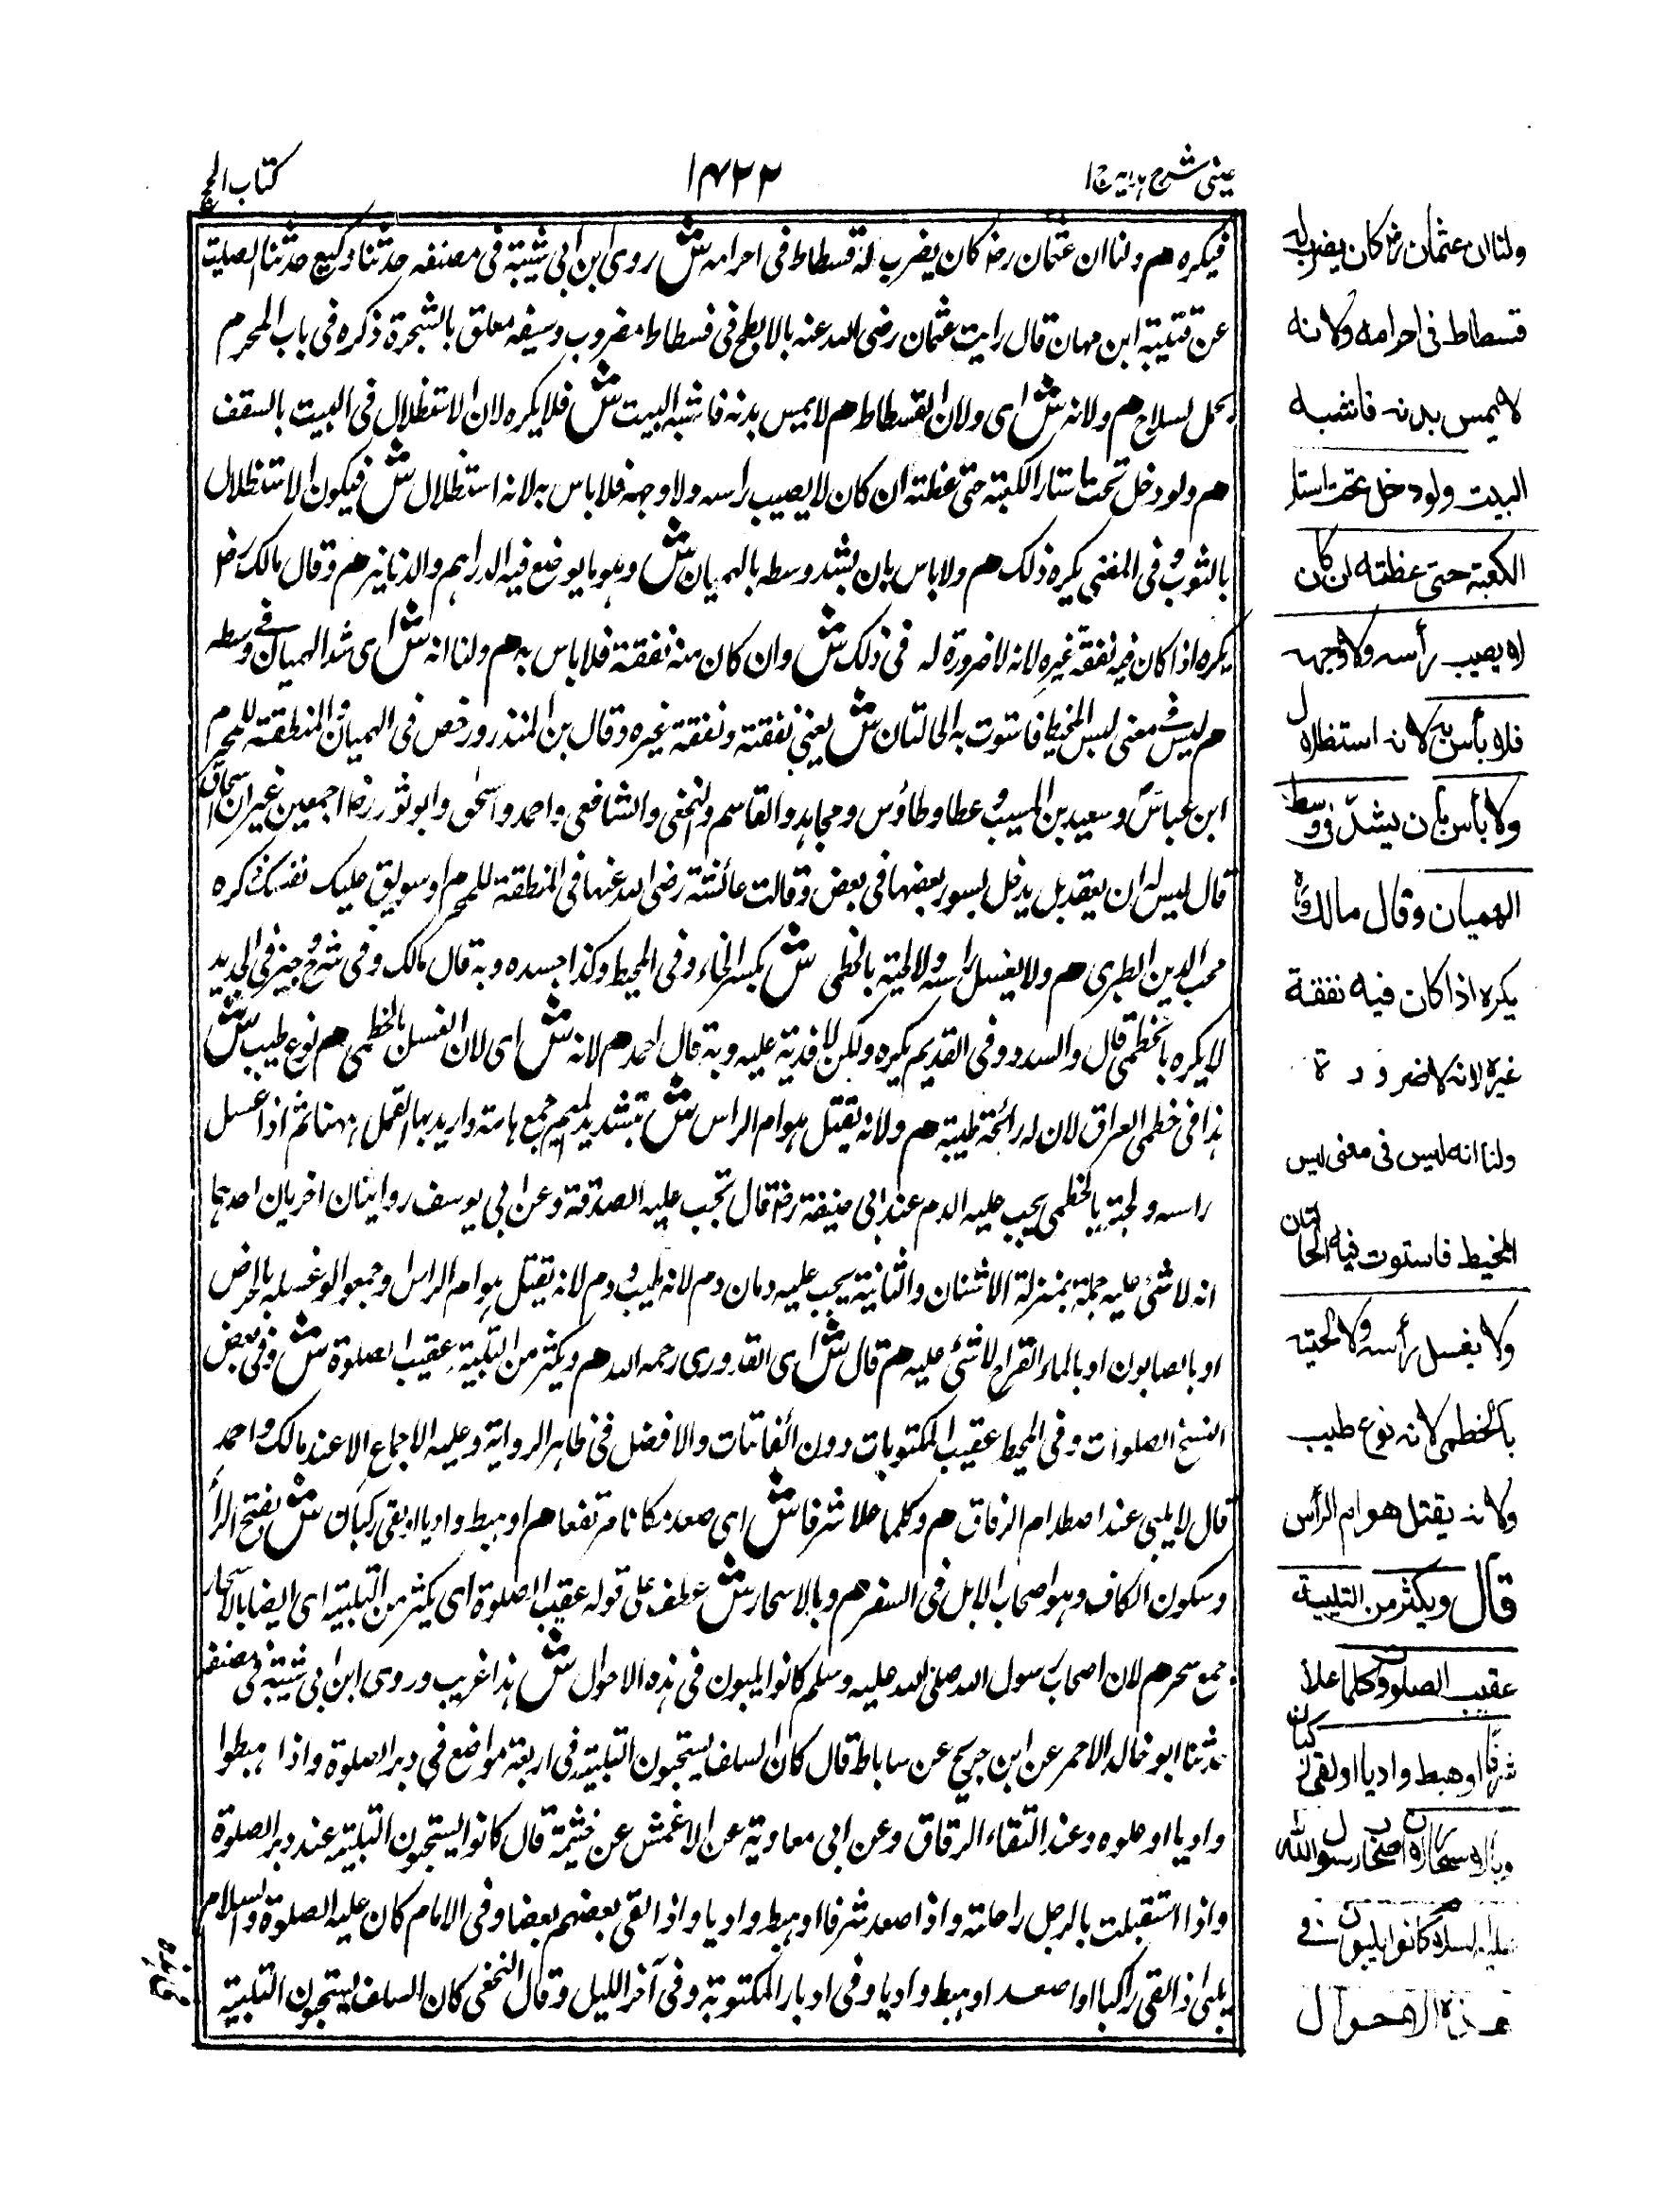 عینی شرح ہدایہ ج ۱
۱۴۲۲
کتاب الحج
فیکره هم ولنا ان عثمان رض کان یضرب له فسطاط فی احرامه ش روی ابن ابی شیبة فی مصنفه حدثنا وکیع حدثنا الصلت
عن عقبة ابن صهبان قال رایت عثمان رضی الله عنه بالابطح فی فسطاط مضروب وسیفه معلق بالشجرة ذکره فی باب المحرم
یحمل السلاح هم ولانه ش ای ولان الفسطاط هم لا یمس بدنه فاشبه البیت ش فلا یکره لان الاستظلال فی البیت بالسقف
هم ولو دخل تحت استار الکعبة حتی غطته ان کان لا یصیب راسه ولا وجهه فلا باس به لانه استظلال ش فیکون الاستظلال
بالثوب وفی المغنی یکره ذلک هم ولا باس بان یشد وسطه بالهمیان ش وهو ما یوضع فیه الدراهم والدنانیر هم وقال مالک رض
یکره اذا کان فیه نفقة غیره لانه لا ضرورة له فی ذلک ش وان کان منه نفقة فلا باس به هم ولنا انه ش ای شد الهمیان فی وسطه
هم لیس فی معنی لبس المخیط فاستوت به الحالتان ش یعنی نفقته ونفقة غیره وقال بن المنذر ورخص فی الهمیان والمنطقة للمحرم
ابن عباس وسعید بن المسیب وعطا وطاؤس ومجاهد والقاسم والنخعی والشافعی واحمد واسحٰق وابو ثور رض اجمعین غیر ان اسحاق
قال لیس له ان یعقد بل یدخل السیور بعضها فی بعض وقالت عائشة رضی الله عنها فی المنطقة للمحرم اوثق علیک نفقتک ذکره
محب الدین الطبری هم ولا یغسل راسه ولا لحیته بالخطمی ش بکسر الخاء وفی المحیط وکذا جسده وبه قال مالک وفی شرح وجیز فی الجدید
لا یکره بالخطمی قال والسدر وفی القدیم یکره ولکن لا فدیة علیه وبه قال احمد هم لانه ش ای لان الغسل بالخطمی هم نوع طیب ش
هذا فی خطمی العراق لان له رائحة طیبة هم ولانه یقتل هوام الراس ش بتشدید المیم جمع هامة وارید بها القمل ههنا ثم اذا غسل
راسه ولحیته بالخطمی یجب علیه الدم عند ابی حنیفة رض قال تجب علیه الصدقة وعن ابی یوسف روایتان اخریان احدیهما
انه لا شئ علیه جملة بمنزلة الاشنان والثانیة یجب علیه دمان دم لانه طیب ودم لانه یقتل هوام الراس وجمعوا لو غسله بالحرض
او بالصابون او بالماء القراح لا شئ علیه هم قال ش ای القدوری رحمه الله هم ویکثر من التلبیة عقیب الصلوة ش وفی بعض
النسخ الصلوات وفی المحیط عقیب المکتوبات دون الفائتات والافضل فی ظاهر الروایة وعلیه الاجماع الا عند مالک واحمد
قال لا یلبی عند اصطدام الرفاق هم وکلما علا شرفا ش ای صعد مکانا مرتفعا هم او هبط وادیا او لقی رکبان ش بفتح الراء
وسکون الکاف وهو اصحاب الابل فی السفر هم وبالاسحار ش عطف علی قوله عقیب الصلوة ای یکثر من التلبیة ای ایضا بالاسحار
جمع سحر هم لان اصحاب رسول الله صلی الله علیه وسلم کانوا یلبون فی هذه الاحوال ش هذا غریب وروی ابن ابی شیبة فی مصنفه
حدثنا ابو خالد الاحمر عن ابن جریج عن ساباط قال کان السلف یستحبون التلبیة فی اربعة مواضع فی دبر الصلوة واذا هبطوا
وادیا او علوه وعند التقاء الرفاق وعن ابی معاویة عن الاعمش عن خیثمة قال کانوا یستحبون التلبیة عند دبر الصلوة
واذا استقبلت بالرجل راحلته واذا صعد شرفا او هبط وادیا واذا لقی بعضهم بعضا وفی الامام کان علیه الصلوة والسلام
یلبی اذا لقی راکبا او صعد او هبط وادیا وفی ادبار المکتوبة وفی آخر اللیل وقال النخعی کان السلف یستحبون التلبیة
ولنا ان عثمان رض کان یضرب له
فسطاط فی احرامه ولانه
لا یمس بدنه فاشبه
البیت ولو دخل تحت استار
الکعبة حتی غطته ان کان
لا یصیب رأسه ولا وجهه
فلا بأس به لانه استظلال
ولا بأس بان یشدّ فی وسطه
الهمیان وقال مالک
یکره اذا کان فیه نفقة
غیره لانه لا ضرورة
ولنا انه لیس فی معنی لبس
المخیط فاستوت فیه الحالتان
ولا یغسل رأسه ولا لحیته
بالخطمی لانه نوع طیب
ولانه یقتل هوام الرأس
قال ویکثر من التلبیة
عقیب الصلوة وکلما علا
شرفا او هبط وادیا او لقی رکبان
وبالاسحار لان اصحاب رسول الله
علیه السلام کانوا یلبون فی
هذه الاحوال